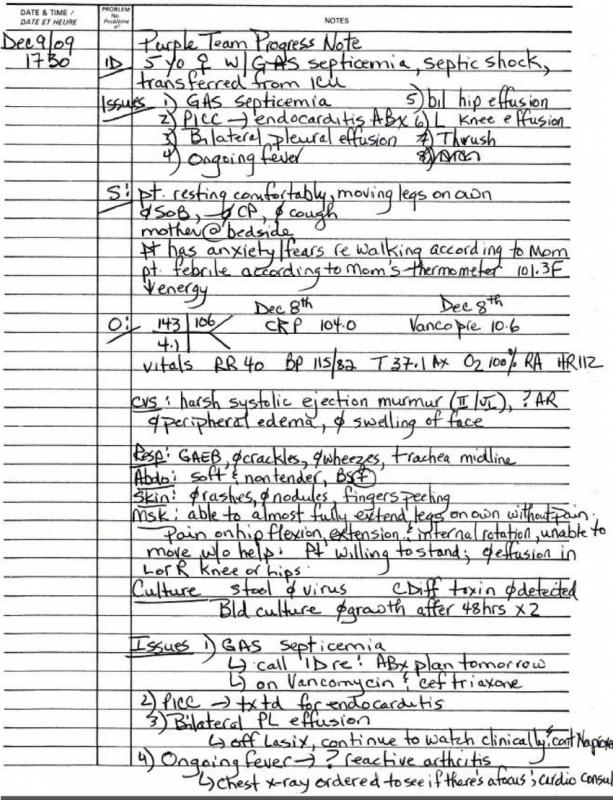 DATE & TIME / PROBLEM No. NOTES
DATE ET HEURE Problème n°
Dec 9/09 Purple Team Progress Note
1730 ID 5 y/o ♀ w/ GAS septicemia, septic shock,
transferred from ICU
Issues 1) GAS septicemia 5) bil hip effusion
2) PICC → endocarditis ABx 6) L Knee effusion
3) Bilateral pleural effusion 7) Thrush
4) Ongoing fever 8)
S: pt. resting comfortably, moving legs on own
∅ SOB, ∅ CP, ∅ cough
mother @ bedside
pt has anxiety/fears re walking according to Mom
pt. febrile according to Mom's thermometer 101.3F
↓ energy
Dec 8th Dec 8th
O: 143 | 106 CRP 104.0 Vanco pre 10.6
4.1
vitals RR 40 BP 115/82 T 37.1 Ax O2 100% RA HR 112
CVS: harsh systolic ejection murmur (II/VI), ? AR
∅ peripheral edema, ∅ swelling of face
Resp: GAEB, ∅ crackles, ∅ wheezes, trachea midline
Abdo: soft & nontender, BS ⊕
Skin: ∅ rashes, ∅ nodules, fingers peeling
MSK: able to almost fully extend legs on own without pain.
Pain on hip flexion, extension & internal rotation, unable to
move w/o help. Pt willing to stand; ∅ effusion in
L or R knee or hips.
Culture stool ∅ virus CDiff toxin ∅ detected
Bld culture ∅ growth after 48hrs x 2
Issues 1) GAS septicemia
↳ call ID re: ABx plan tomorrow
↳ on Vancomycin & ceftriaxone
2) PICC → txtd for endocarditis
3) Bilateral PL effusion
↳ off Lasix, continue to watch clinically & cont Naproxe
4) Ongoing fever → ? reactive arthritis
↳ chest x-ray ordered to see if there's a focus; cardio consul